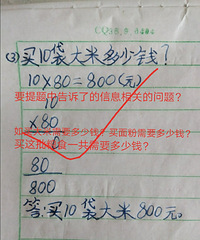 ③买10袋大米多少钱？
10×80=800(元)
要提题中告诉了的信息相关的问题？
10
×80
如买大米需要多少钱？买面粉需要多少钱？
0
买这批粮食一共需要多少钱？
80
800
答：买10袋大米800元。